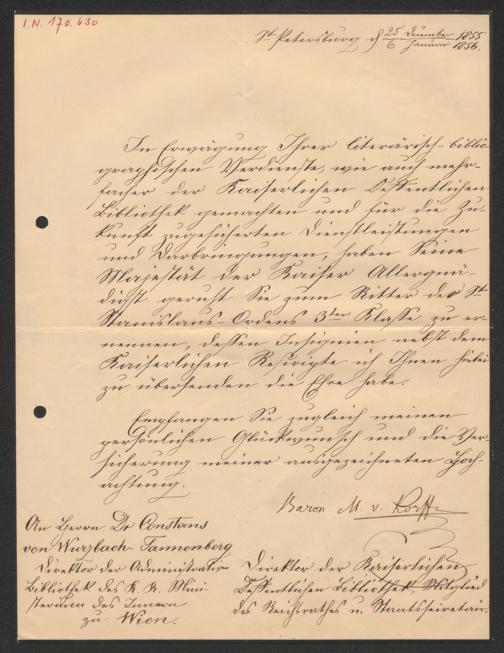 I.N. 170.630
St Petersburg d 25 December 1855
6 Januar 1856.
In Erwägung Ihrer literärisch-biblio
graphischen Verdienste, wie auch mehr-
facher der Kaiserlichen Oeffentlichen
Bibliothek gemachten und für die Zu-
kunft zugesicherten Dienstleistungen
und Darbringungen, haben Seine
Majestät der Kaiser Allergnä-
digst geruht Sie zum Ritter des St
Stanislaus-Ordens 3ter Klasse zu er-
nennen, dessen Insignien nebst dem
Kaiserlichen Rescripte ich Ihnen hiebei
zu übersenden die Ehre habe.
Empfangen Sie zugleich meinen
persönlichen Glückwunsch und die Ver-
sicherung meiner ausgezeichneten Hoch-
achtung.
Baron M. v. Korff
An Herrn Dr Constans
von Wurzbach-Tannenberg
Direktor der Administrativ-
Bibliothek des K. K. Mini-
sterium des Innern
zu Wien.
Direktor der Kaiserlichen
Oeffentlichen Bibliothek, Mitglied
des Reichsrathes u. Staatssecretair.